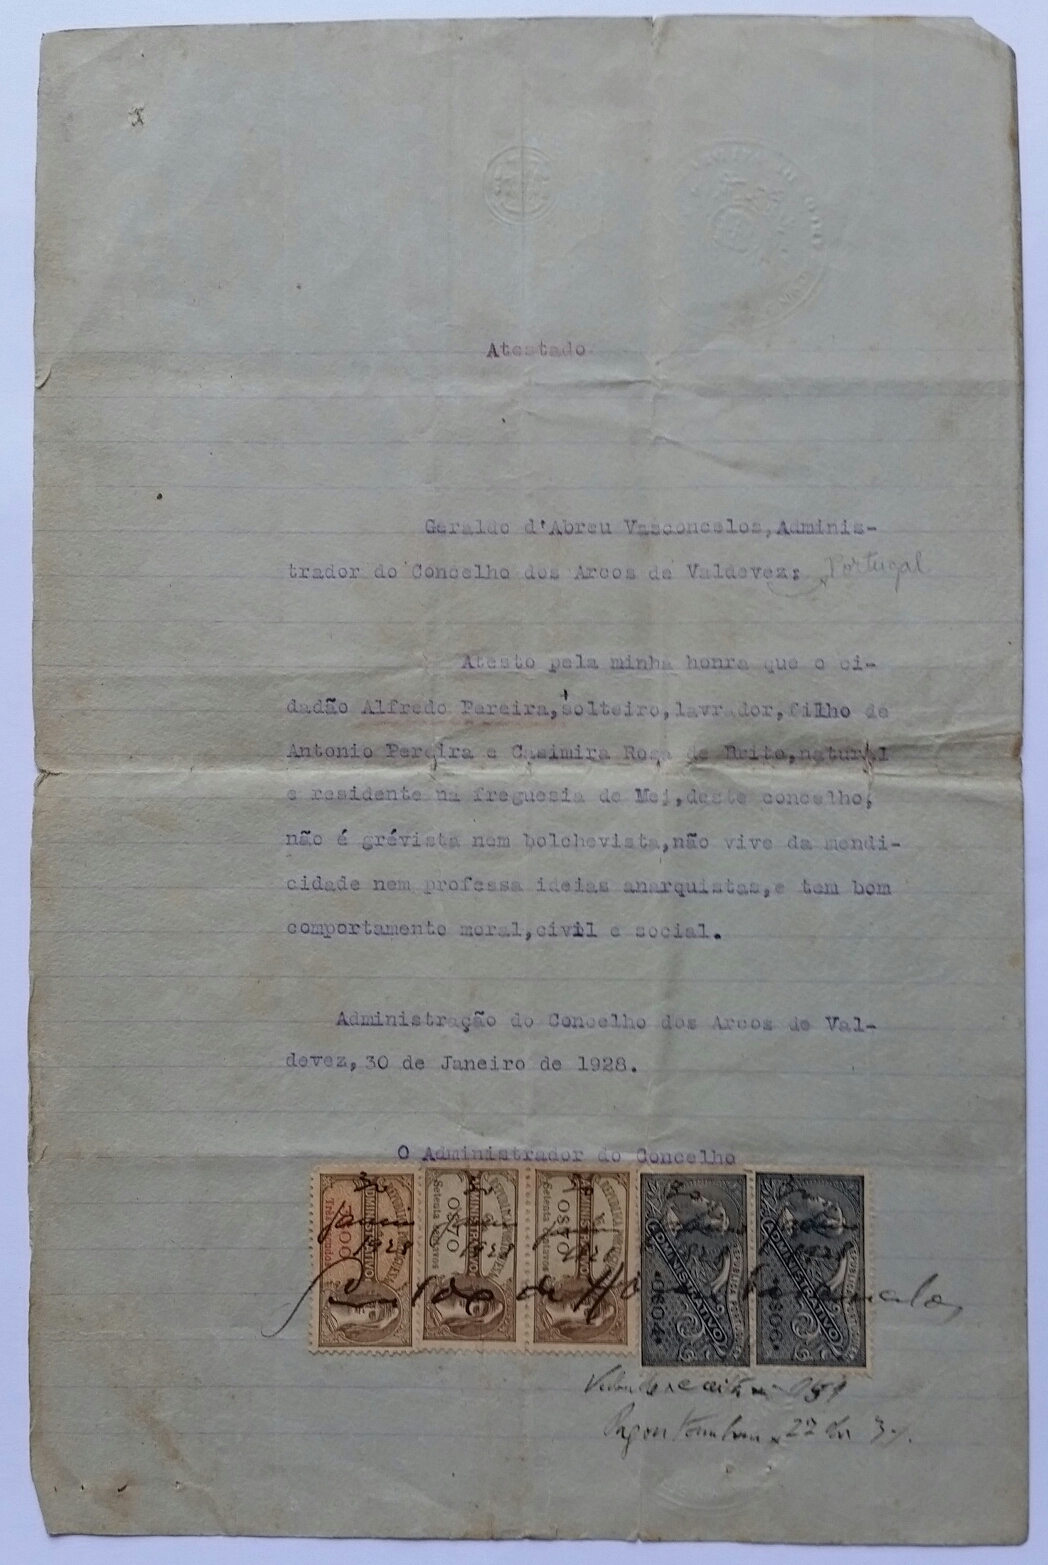 Atestado
Geraldo d'Abreu Vasconcelos,Adminis-
trador do Concelho dos Arcos de Valdevez; Portugal
Atesto pela minha honra que o ci-
dadão Alfredo Pereira,solteiro,lavrador,filho de
Antonio Pereira e Casimira Rosa de Brito,natural
e residente na freguesia de Mei,deste concelho,
não é grévista nem bolchevista,não vive da mendi-
cidade nem professa ideias anarquistas,e tem bom
comportamento moral,civil e social.
Administração do Concelho dos Arcos de Val-
devez,30 de Janeiro de 1928.
O Administrador do Concelho
ADMINISTRATIVO
ADMINISTRATIVO 0$70 Setenta centavos
ADMINISTRATIVO 0$70 Setenta centavos
ADMINISTRATIVO
ADMINISTRATIVO